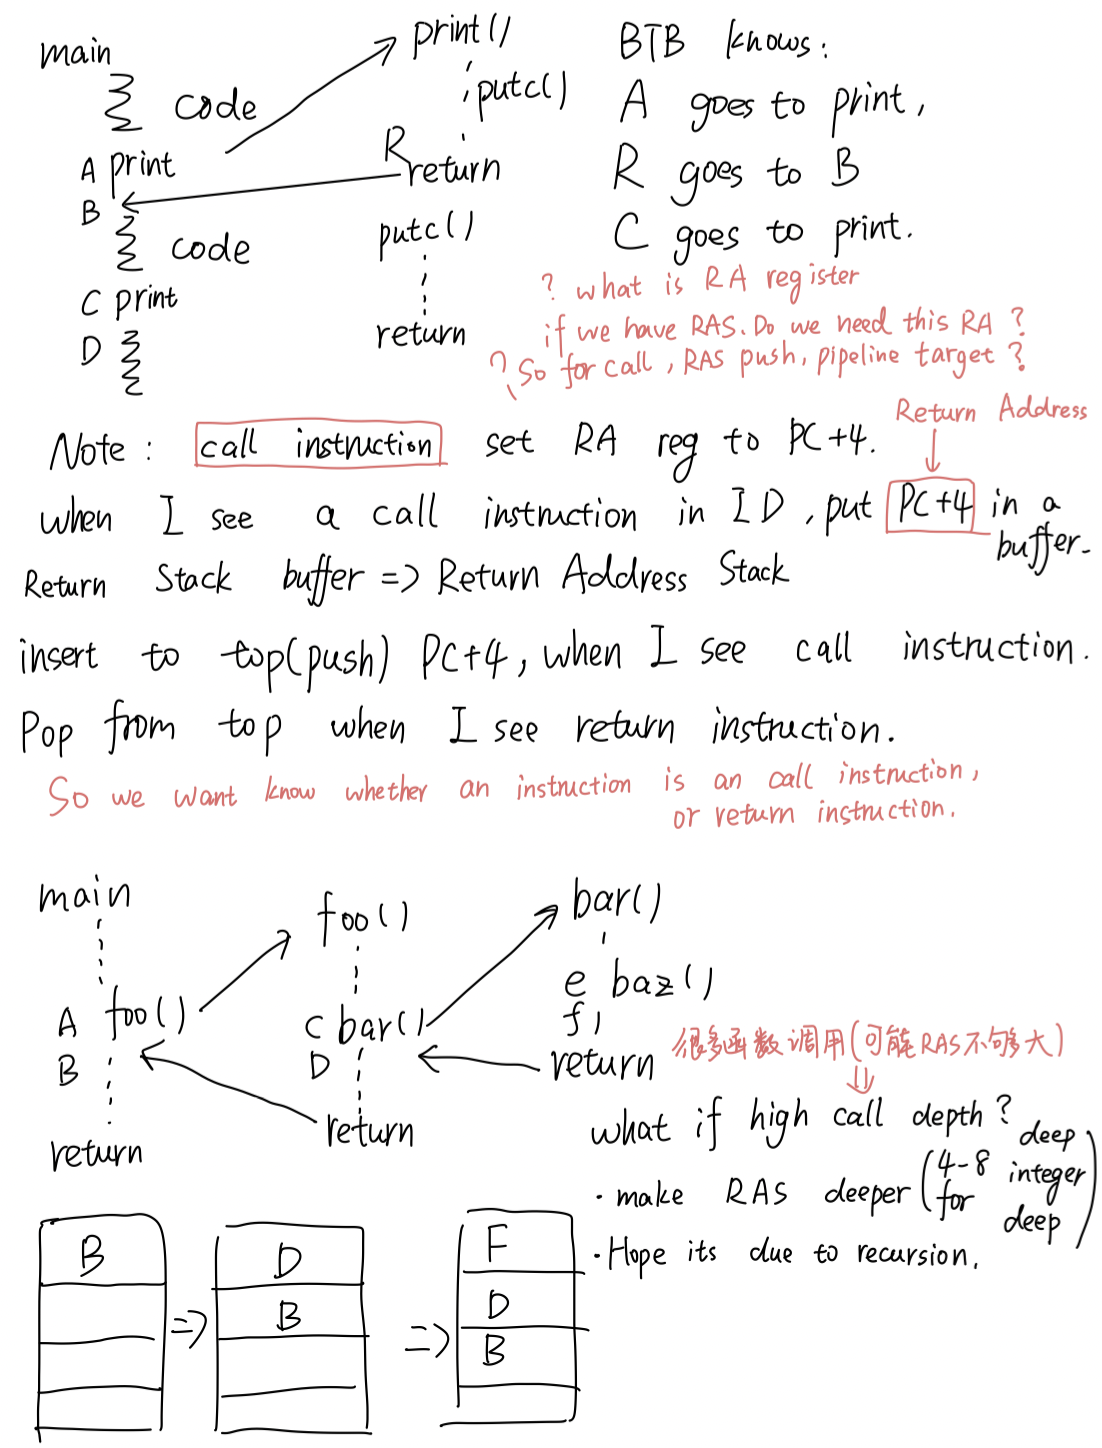 main
code
A print
B
code
C print
D
print()
putc()
R
return
putc()
return
BTB knows:
A goes to print,
R goes to B
C goes to print.
? what is RA register
if we have RAS. Do we need this RA ?
? So for call, RAS push, pipeline target ?
Return Address
Note : call instruction set RA reg to PC+4.
when I see a call instruction in ID, put PC+4 in a
buffer.
Return Stack buffer => Return Address Stack
insert to top(push) PC+4, when I see call instruction.
Pop from top when I see return instruction.
So we want know whether an instruction is an call instruction,
or return instruction.
main
A foo()
B
return
foo()
C bar()
D
return
bar()
e baz()
f
return
很多函数调用(可能RAS不够大)
what if high call depth ?
· make RAS deeper (4-8 deep for integer deep)
· Hope its due to recursion.
B
=>
D
B
=>
F
D
B